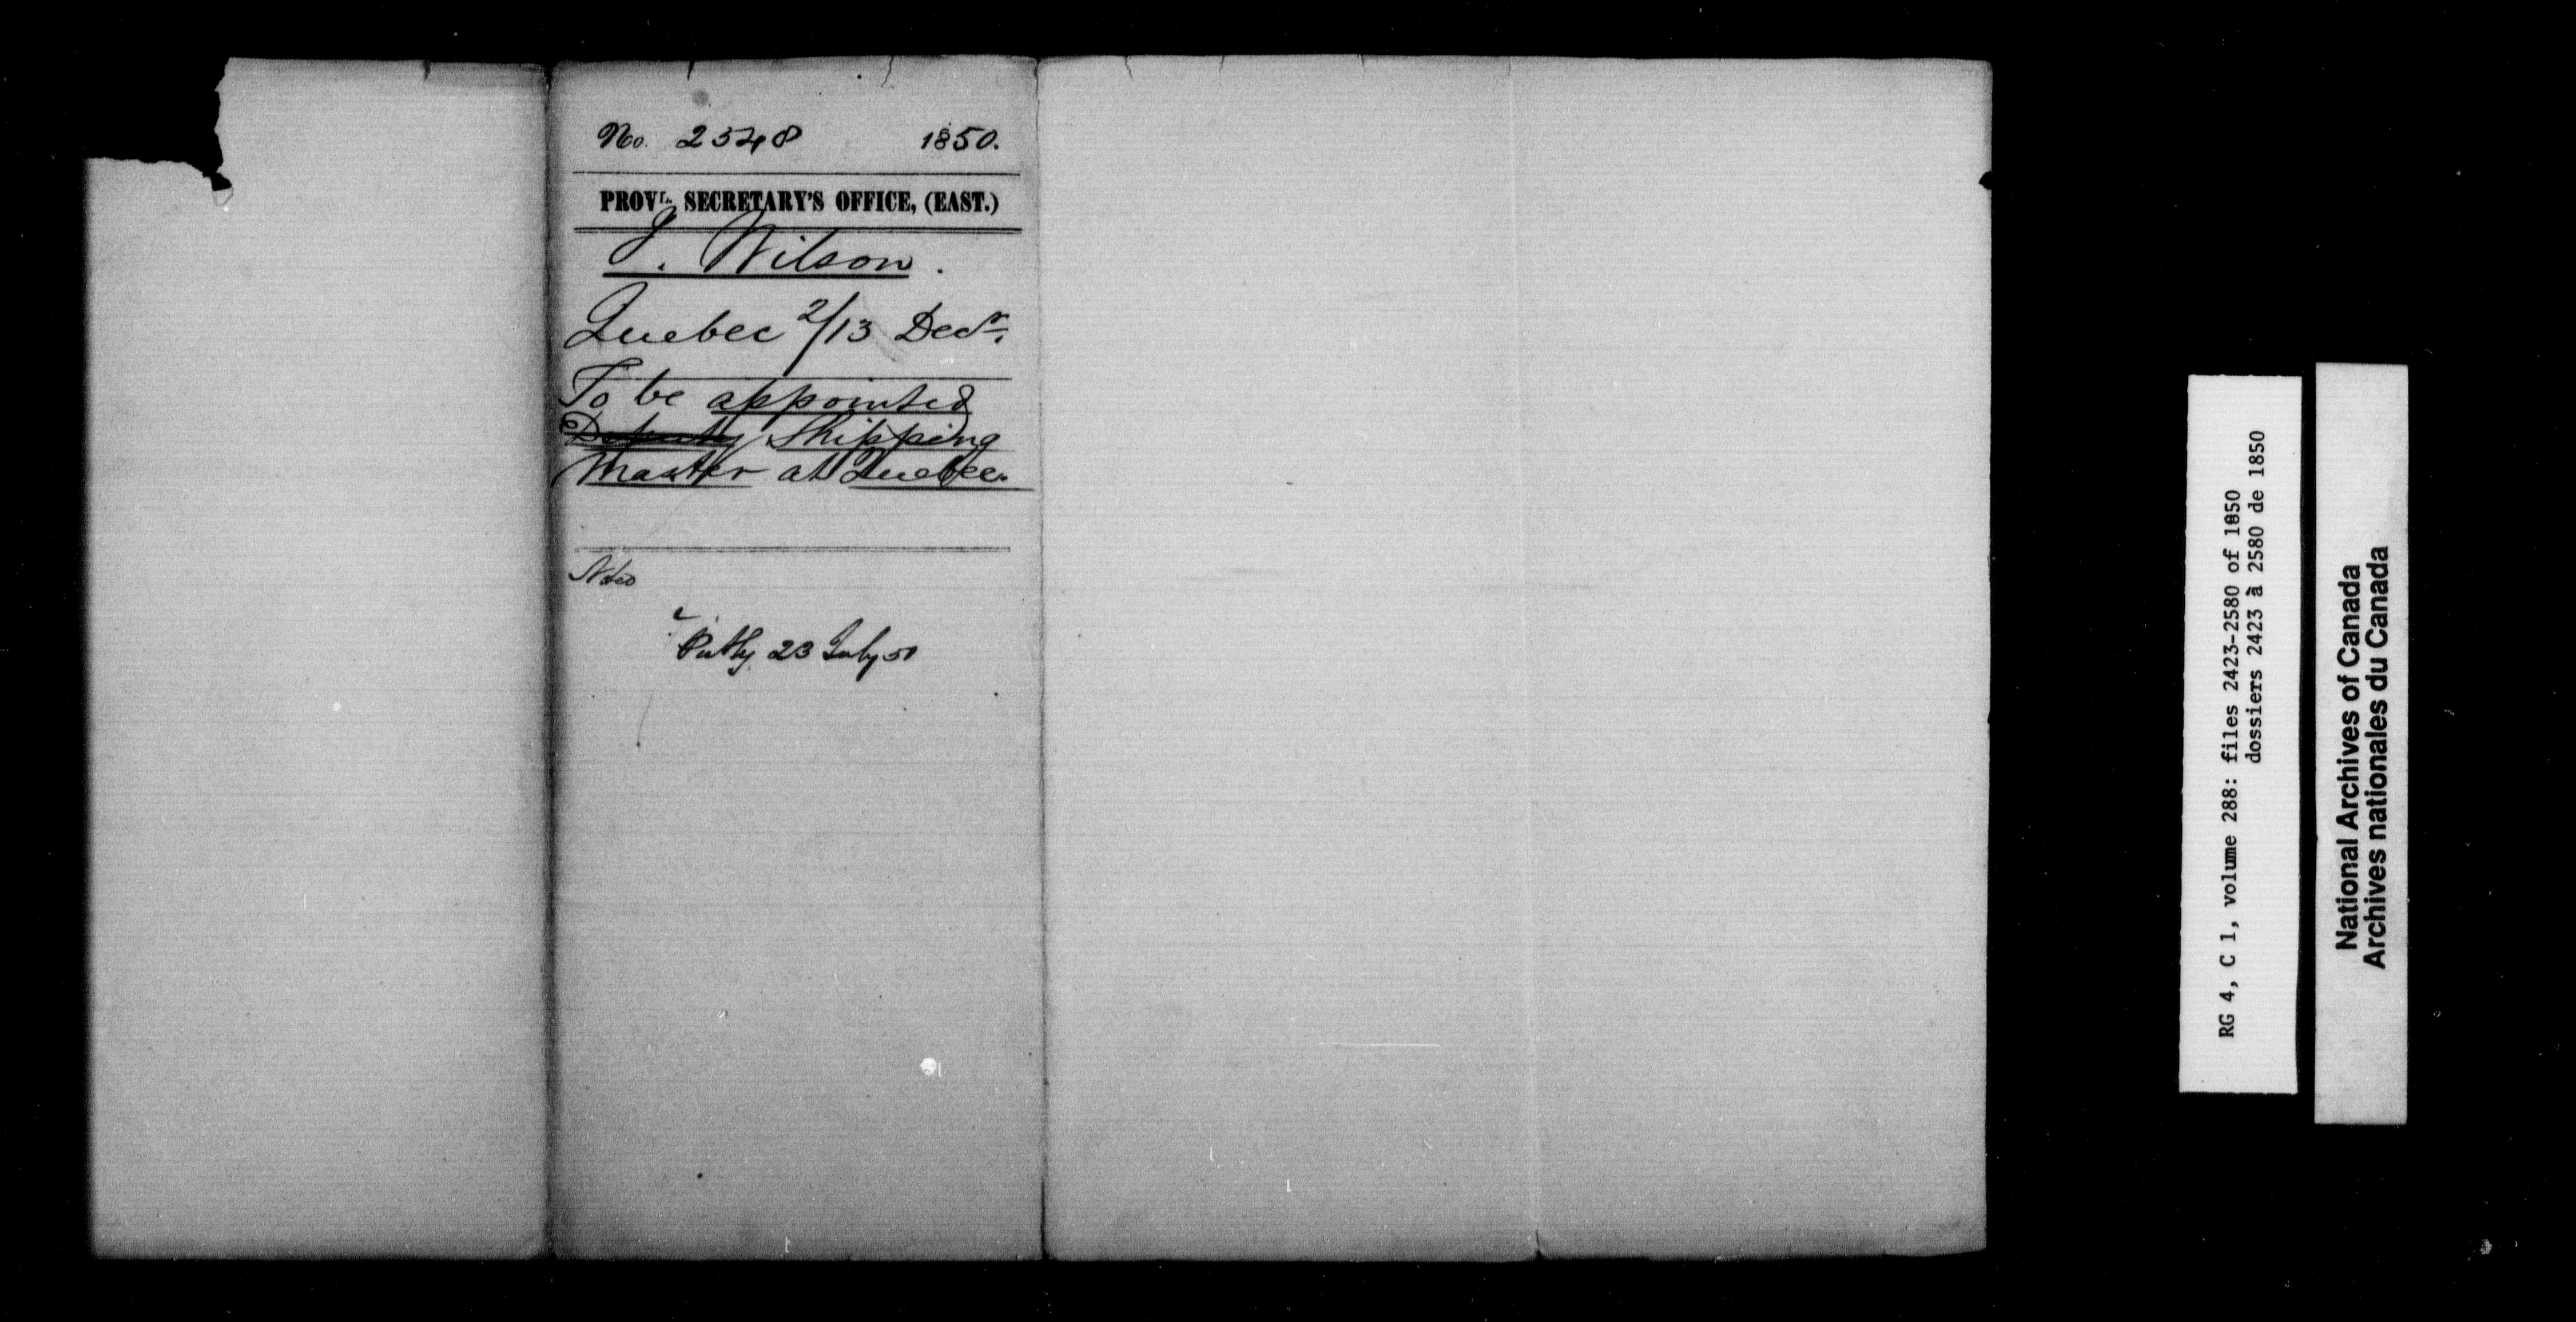 No. 2548 1850.
PROVL. SECRETARY'S OFFICE, (EAST.)
J. Wilson.
Quebec 2/13 Decr.
To be appointed
Deputy Shipping
Master at Quebec.
23 July 51
RG 4, C 1, volume 288: files 2423-2580 of 1850
dossiers 2423 à 2580 de 1850
National Archives of Canada
Archives nationales du Canada